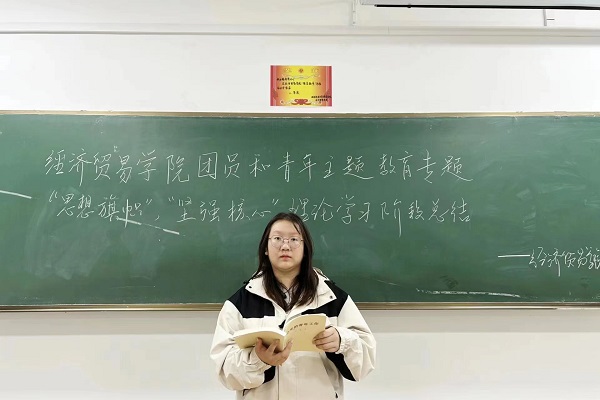 经济贸易学院团员和青年主题教育专题
“思想旗帜”，“坚强核心”理论学习阶段总结
——经济贸易学院